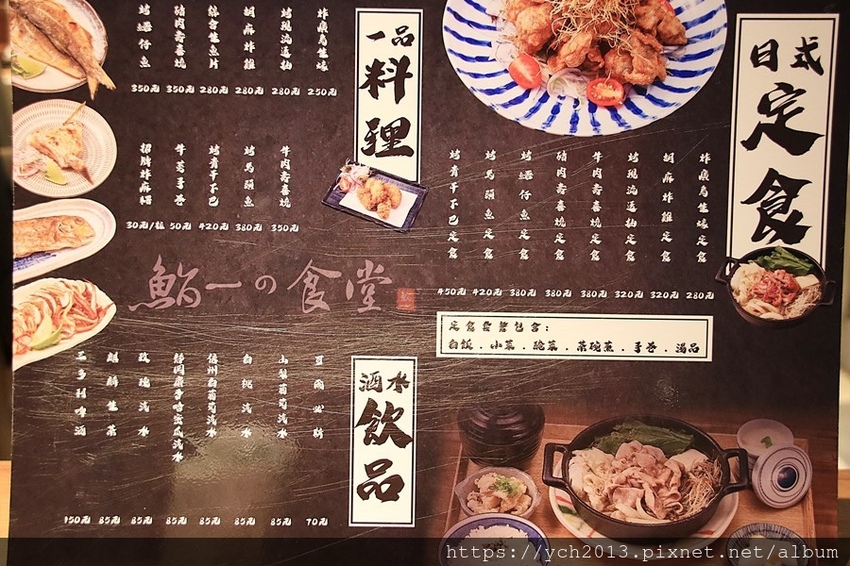 日式定食
炸廣島生蠔定食 280元
胡麻炸雞定食 320元
烤現流透抽定食 320元
牛肉壽喜燒定食 380元
豬肉壽喜燒定食 380元
烤嘿仔魚定食 380元
烤馬頭魚定食 420元
烤青干下巴定食 450元
定食套餐包含：
白飯．小菜．醃菜．茶碗蒸．手卷．湯品
一品料理
炸廣島生蠔 250元
烤現流透抽 280元
胡麻炸雞 280元
綜合生魚片 280元
豬肉壽喜燒 350元
烤嘿仔魚 350元
牛肉壽喜燒 350元
烤馬頭魚 380元
烤青干下巴 420元
牛蒡手卷 50元
招牌炸麻糬 30元/粒
鮨一の食堂
酒水飲品
70元
山梨葡萄汽水 85元
白桃汽水 85元
信州白葡萄汽水 85元
哈密瓜汽水 85元
玫瑰汽水 85元
麒麟生茶 85元
三多利啤酒 150元
https://ych2013.pixnet.net/album